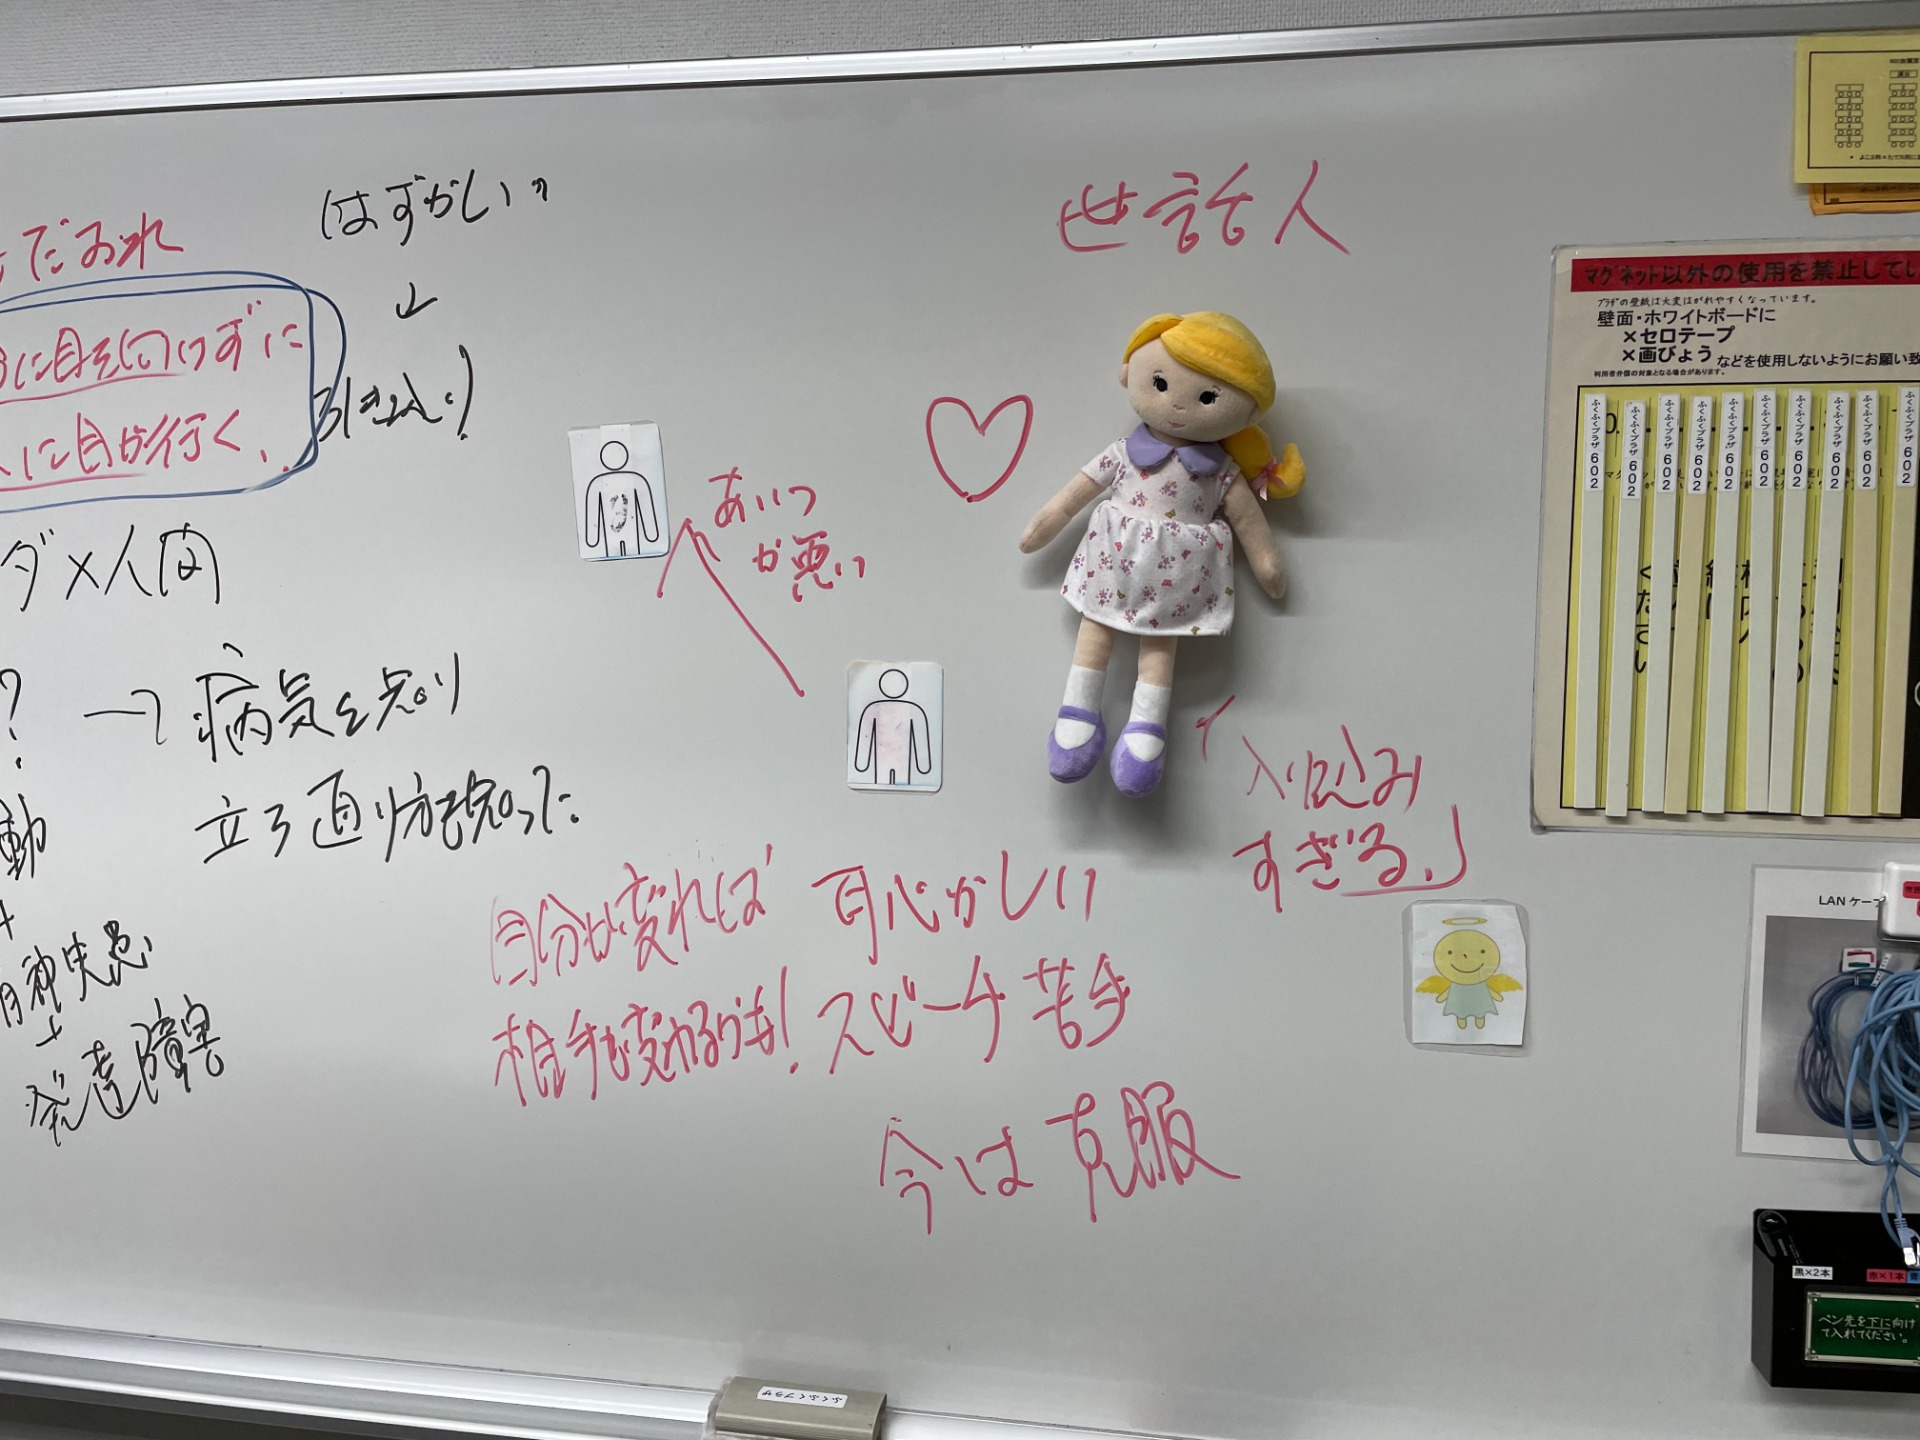 だおれ
はずかしい〃
↓
引き込い!
に目を向けずに
に目が行く、、
ダメ人間
?
→病気を知り
立ち直り方も知った
動
+
精神疾患
+
発達障害
世話人
あいつ
が悪い
入り込み
すぎる、」
自分が変れば
相手も変わるかも!
恥かしい
スピーチ苦手
今は克服
マグネット以外の使用を禁止してい
プラザの壁紙は大変はがれやすくなっています。
壁面・ホワイトボードに
×セロテープ
×画びょう などを使用しないようにお願い致
利用者弁償の対象となる場合があります。
ふくふくプラザ 602
ふくふくプラザ 602
ふくふくプラザ 602
ふくふくプラザ 602
ふくふくプラザ 602
ふくふくプラザ 602
ふくふくプラザ 602
ふくふくプラザ 602
ふくふくプラザ 602
ふくふくプラザ 602
ください
LANケーブ
黒×2本
赤×1本
青
ペン先を下に向け
て入れてください。
ふくふくプラザ